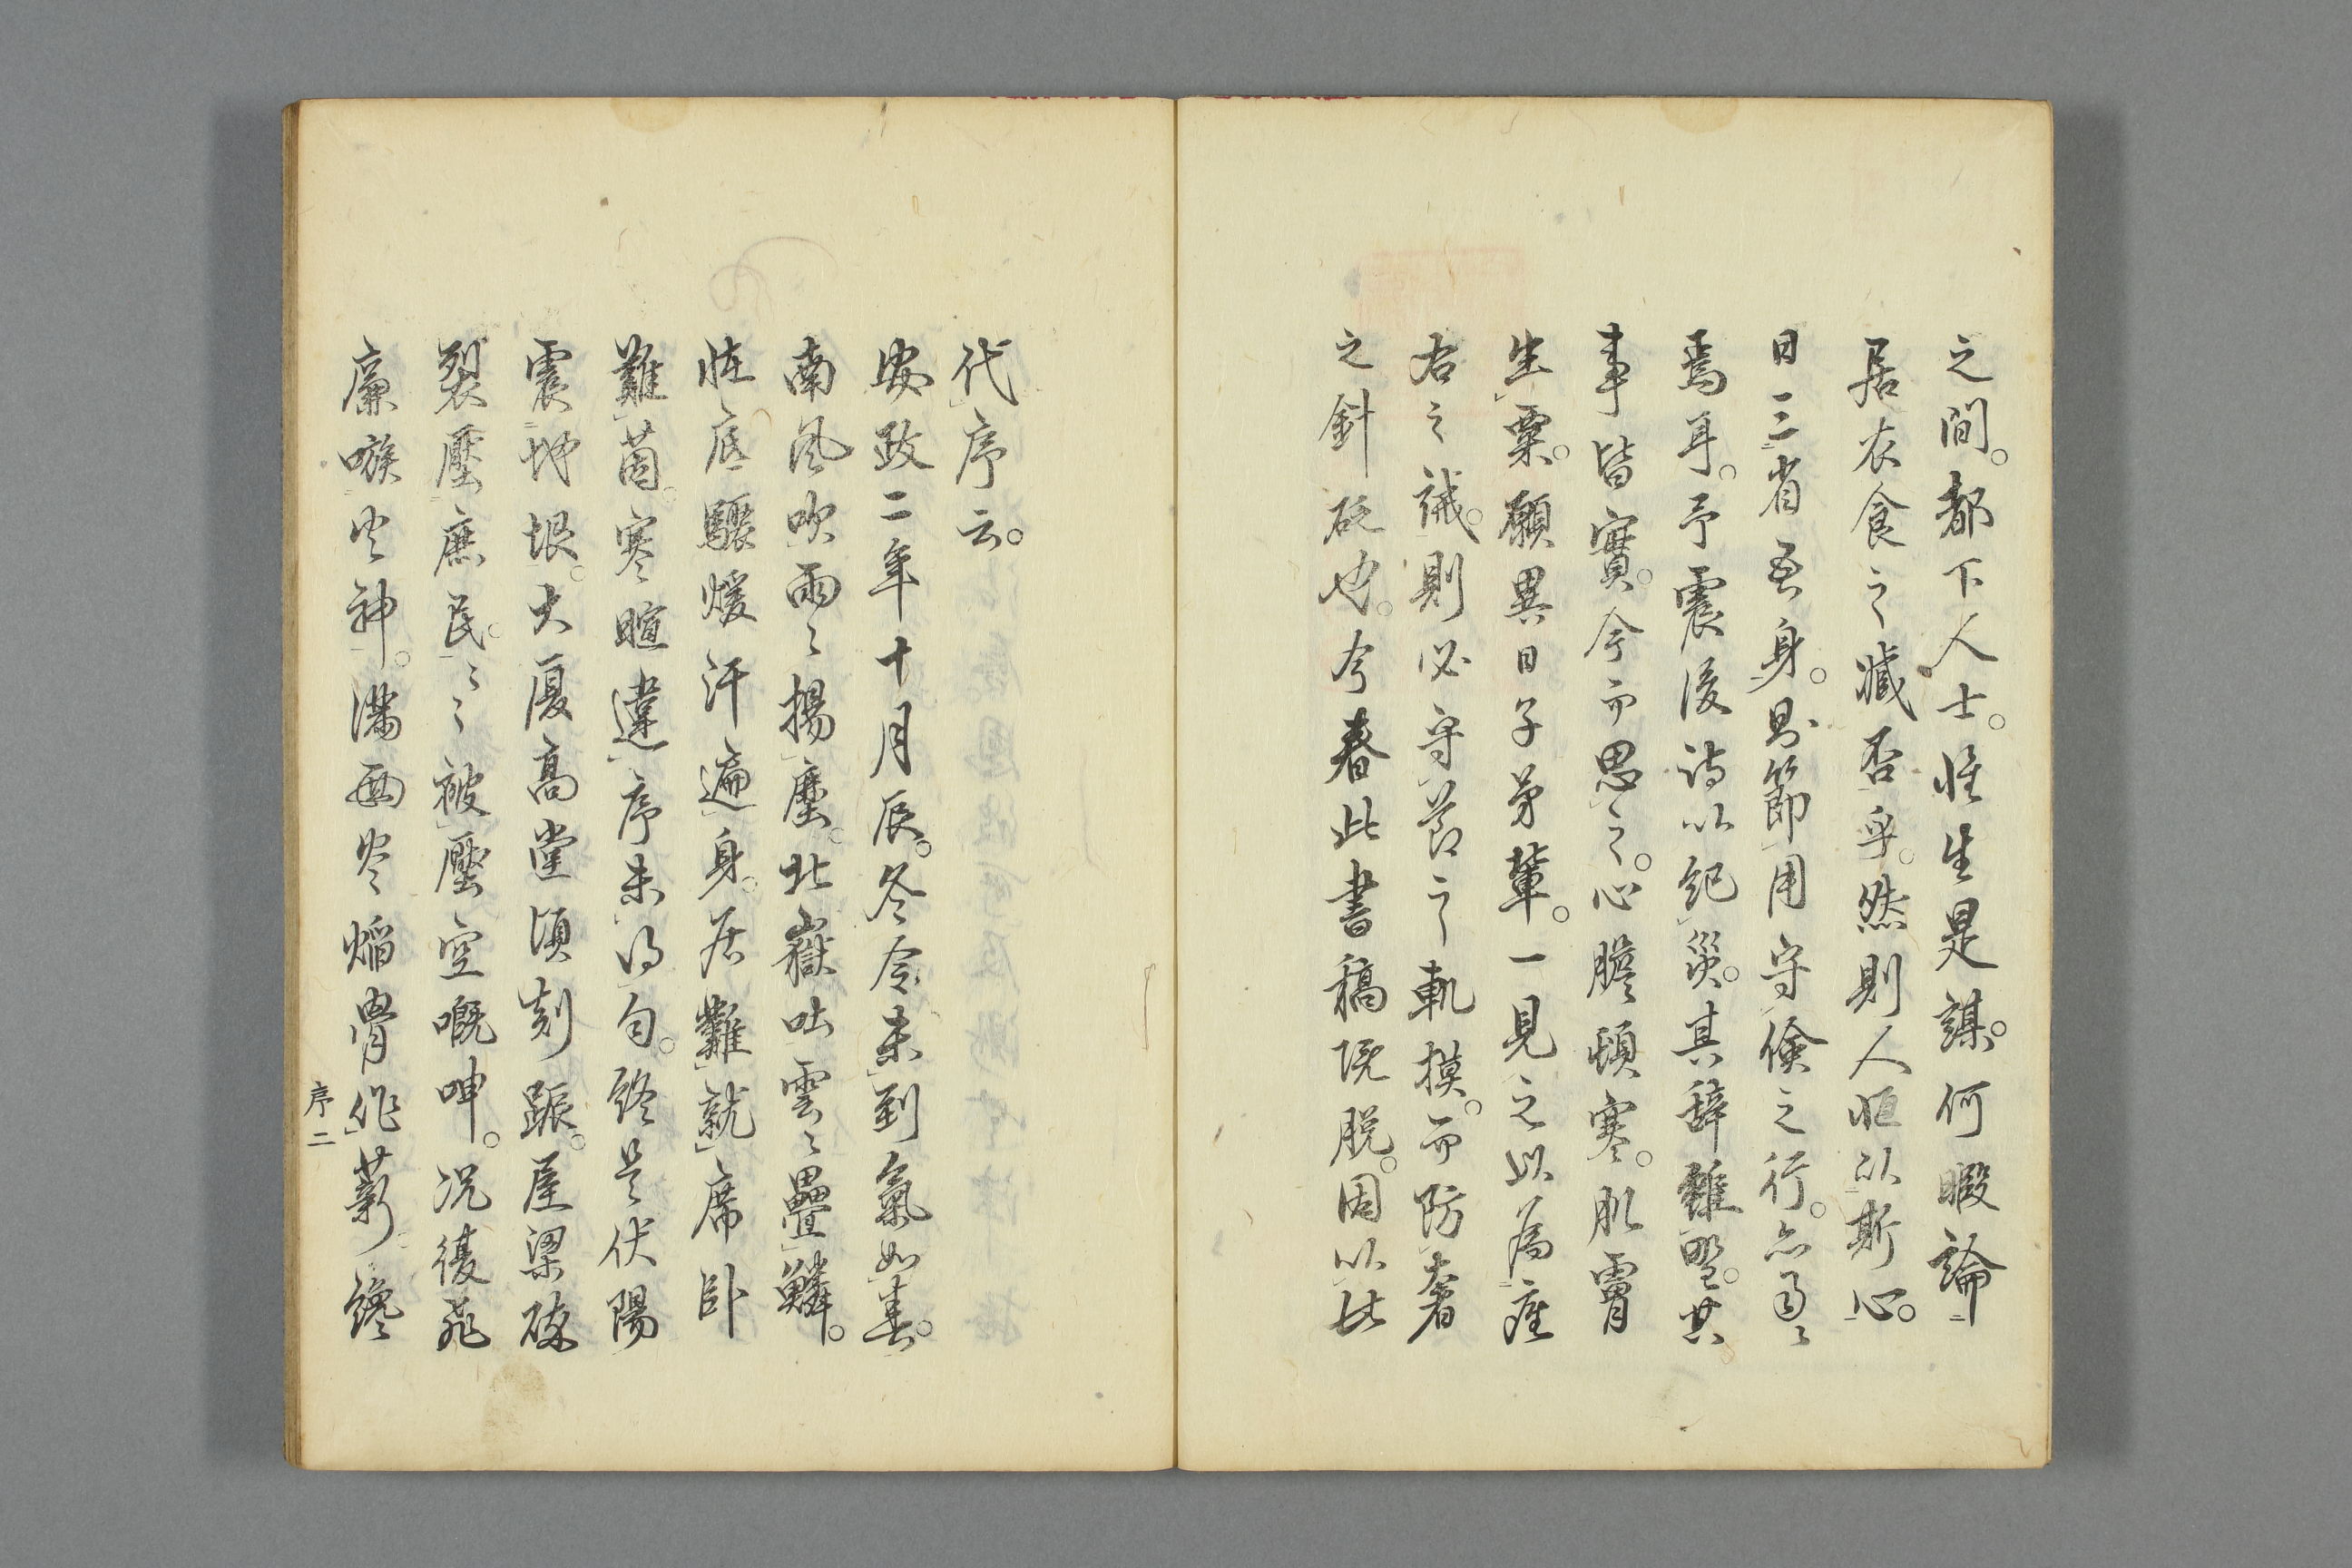 之間。都下人士。惟生是謀。何暇論
居衣食之臧否乎。然則人恒以斯心。
日三省吾身。則節用守儉之行。亦自
焉耳。予震後詩以紀災。其辭雖野。其
事皆實。今而思之。心膽頓寒。肌膚
生粟。願異日子弟輩。一見之以為座
右之誡。則必守節之軌摸。而防奢
之針砭也。今春此書稿既脱。因以此
代序云。
安政二年十月辰。冬令未到氣如春。
南風吹雨々揚塵。北嶽吐雲々疊鱗。
怪底驟煖汗遍身。居難就席臥
難茵。寒暄違序未得句。終是伏陽
震坤垠。大廈高堂頃刻踬。屋梁
裂壓庶民。々々被壓空嘅呻。況復飛
廉嗾火神。滿西
作薪
序二